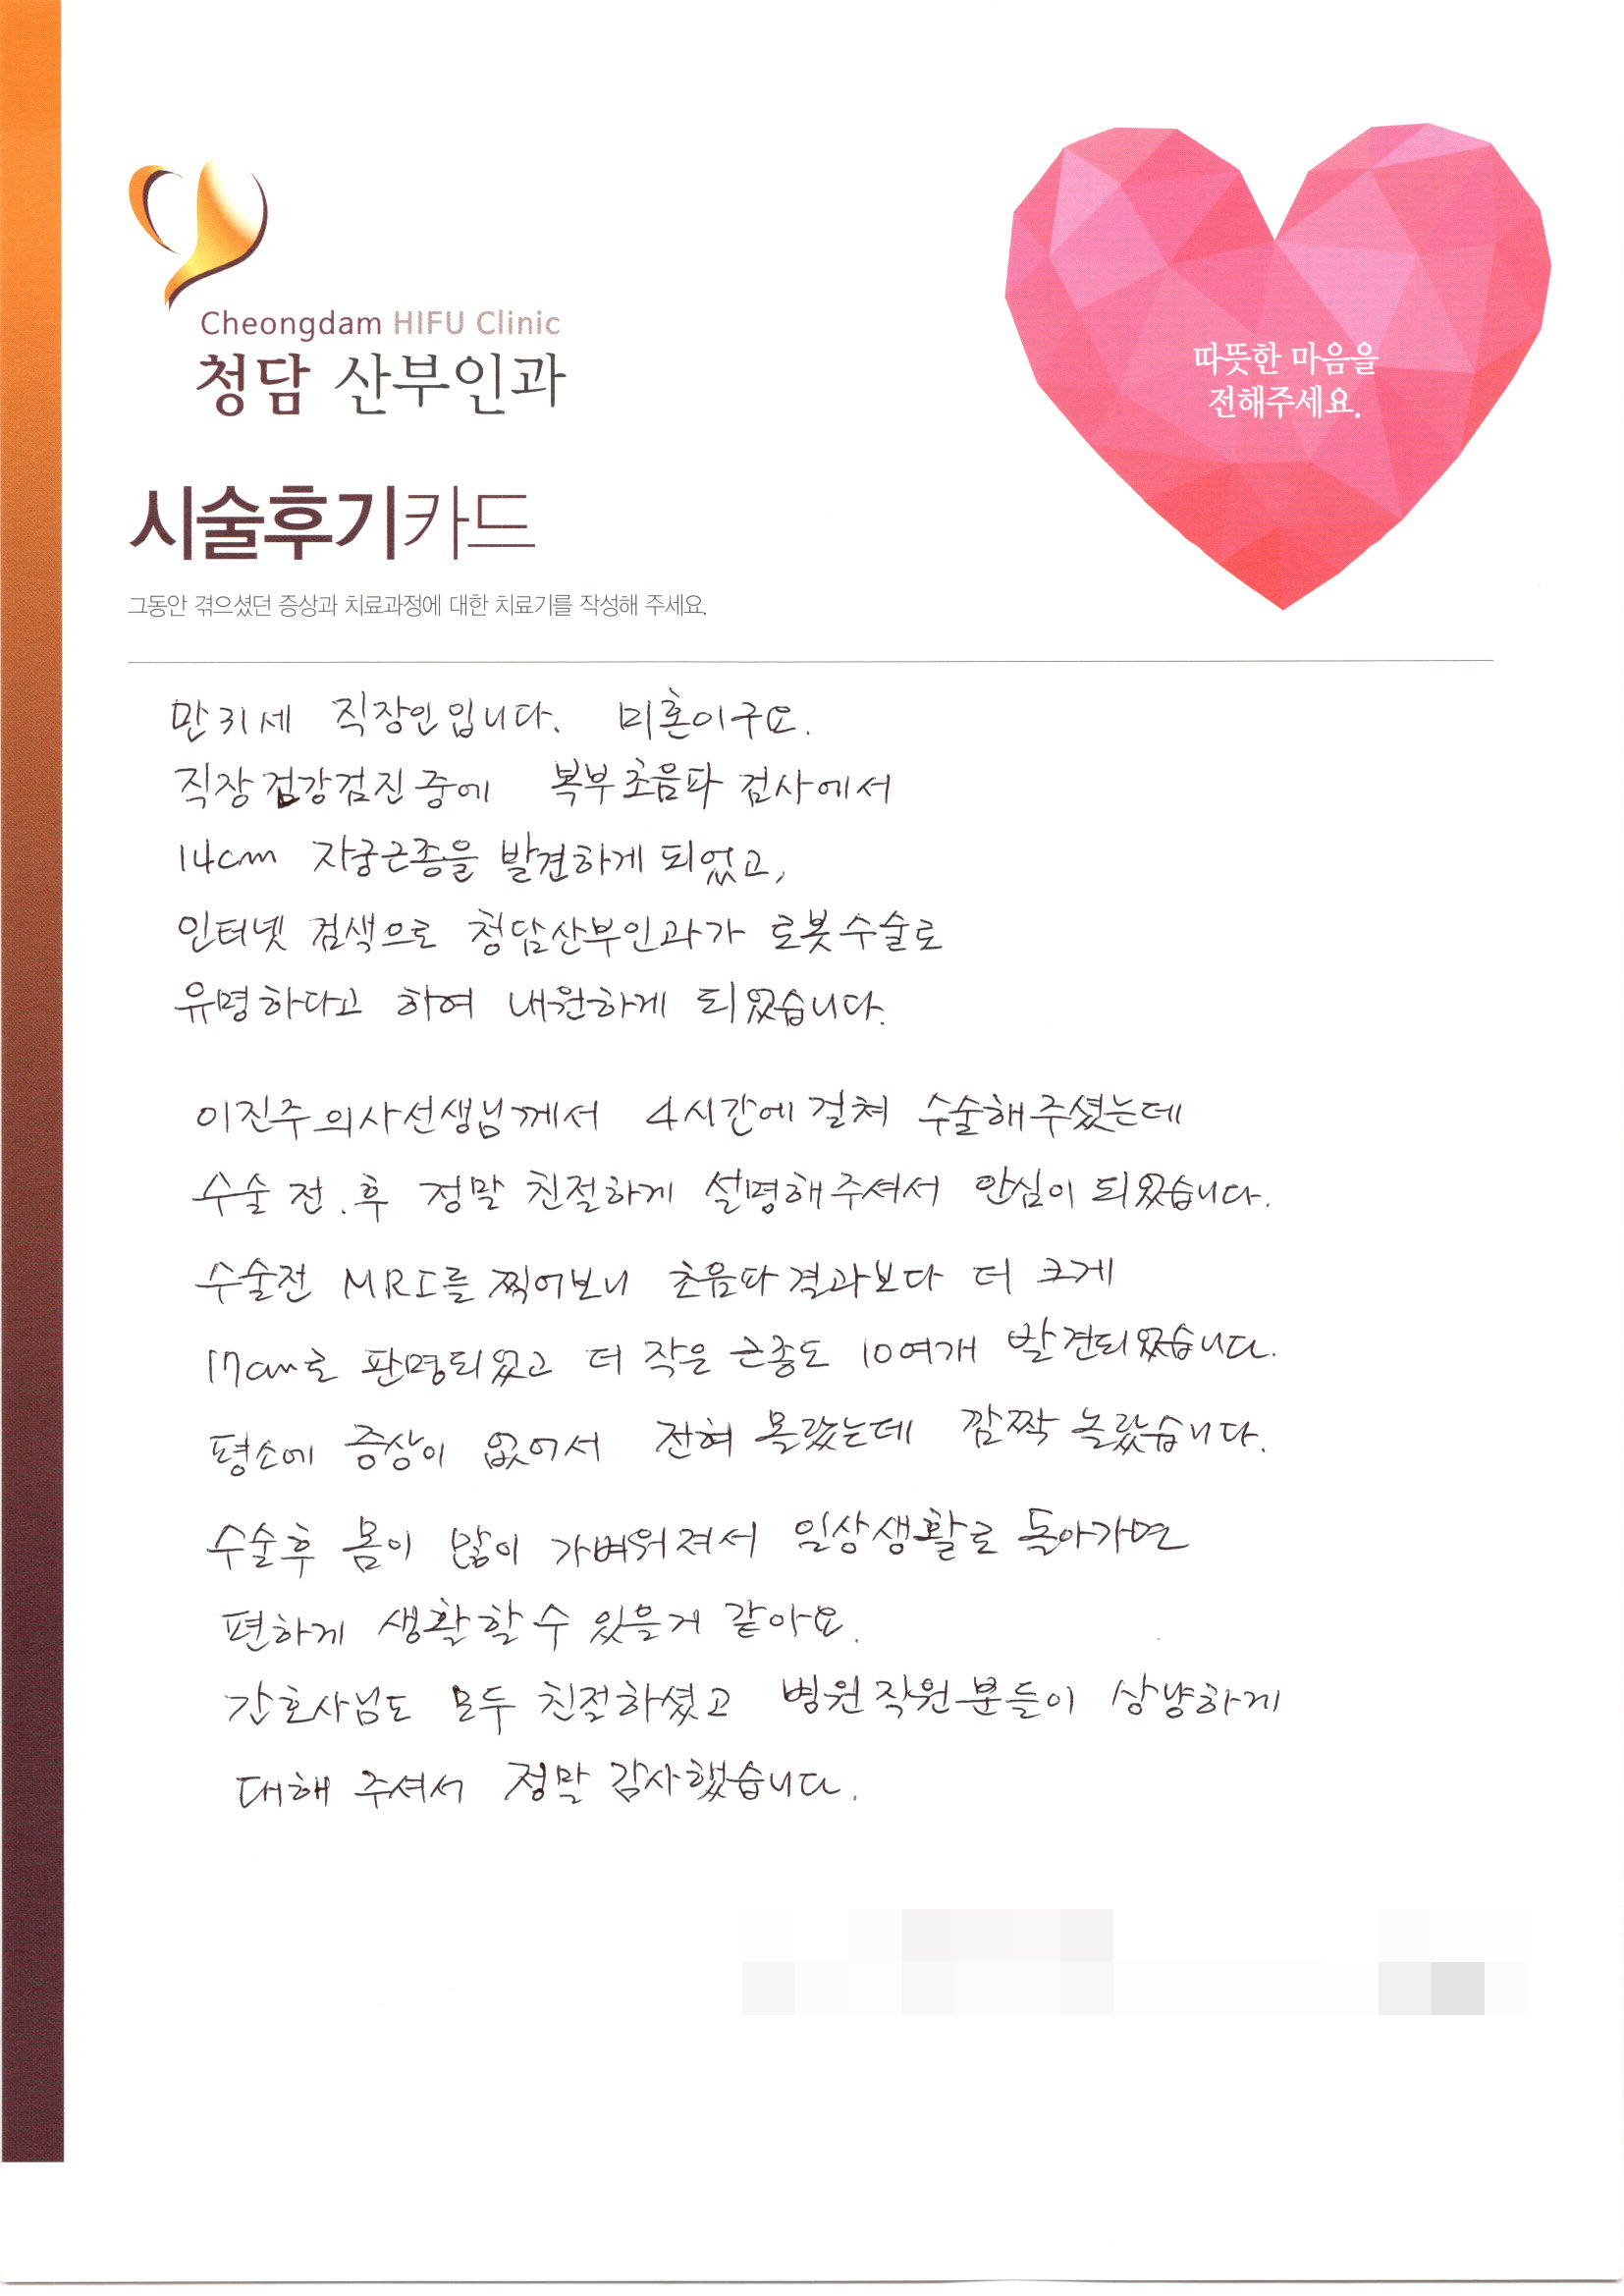 Cheongdam HIFU Clinic
청담 산부인과
따뜻한 마음을
전해주세요.
시술후기카드
그동안 겪으셨던 증상과 치료과정에 대한 치료기를 작성해 주세요.
만 31세 직장인입니다. 미혼이구요.
직장 검강검진 중에 복부초음파 검사에서
14cm 자궁근종을 발견하게 되었고,
인터넷 검색으로 청담산부인과가 로봇수술로
유명하다고 하여 내원하게 되었습니다.
이진주 의사선생님께서 4시간에 걸쳐 수술해주셨는데
수술 전.후 정말 친절하게 설명해주셔서 안심이 되었습니다.
수술전 MRI를 찍어보니 초음파결과보다 더 크게
17cm로 판명되었고 더 작은 근종도 10여개 발견되었습니다.
평소에 증상이 없어서 전혀 몰랐는데 깜짝 놀랐습니다.
수술후 몸이 많이 가벼워져서 일상생활로 돌아가면
편하게 생활할 수 있을거 같아요.
간호사님도 모두 친절하셨고 병원직원분들이 상냥하게
대해 주셔서 정말 감사했습니다.